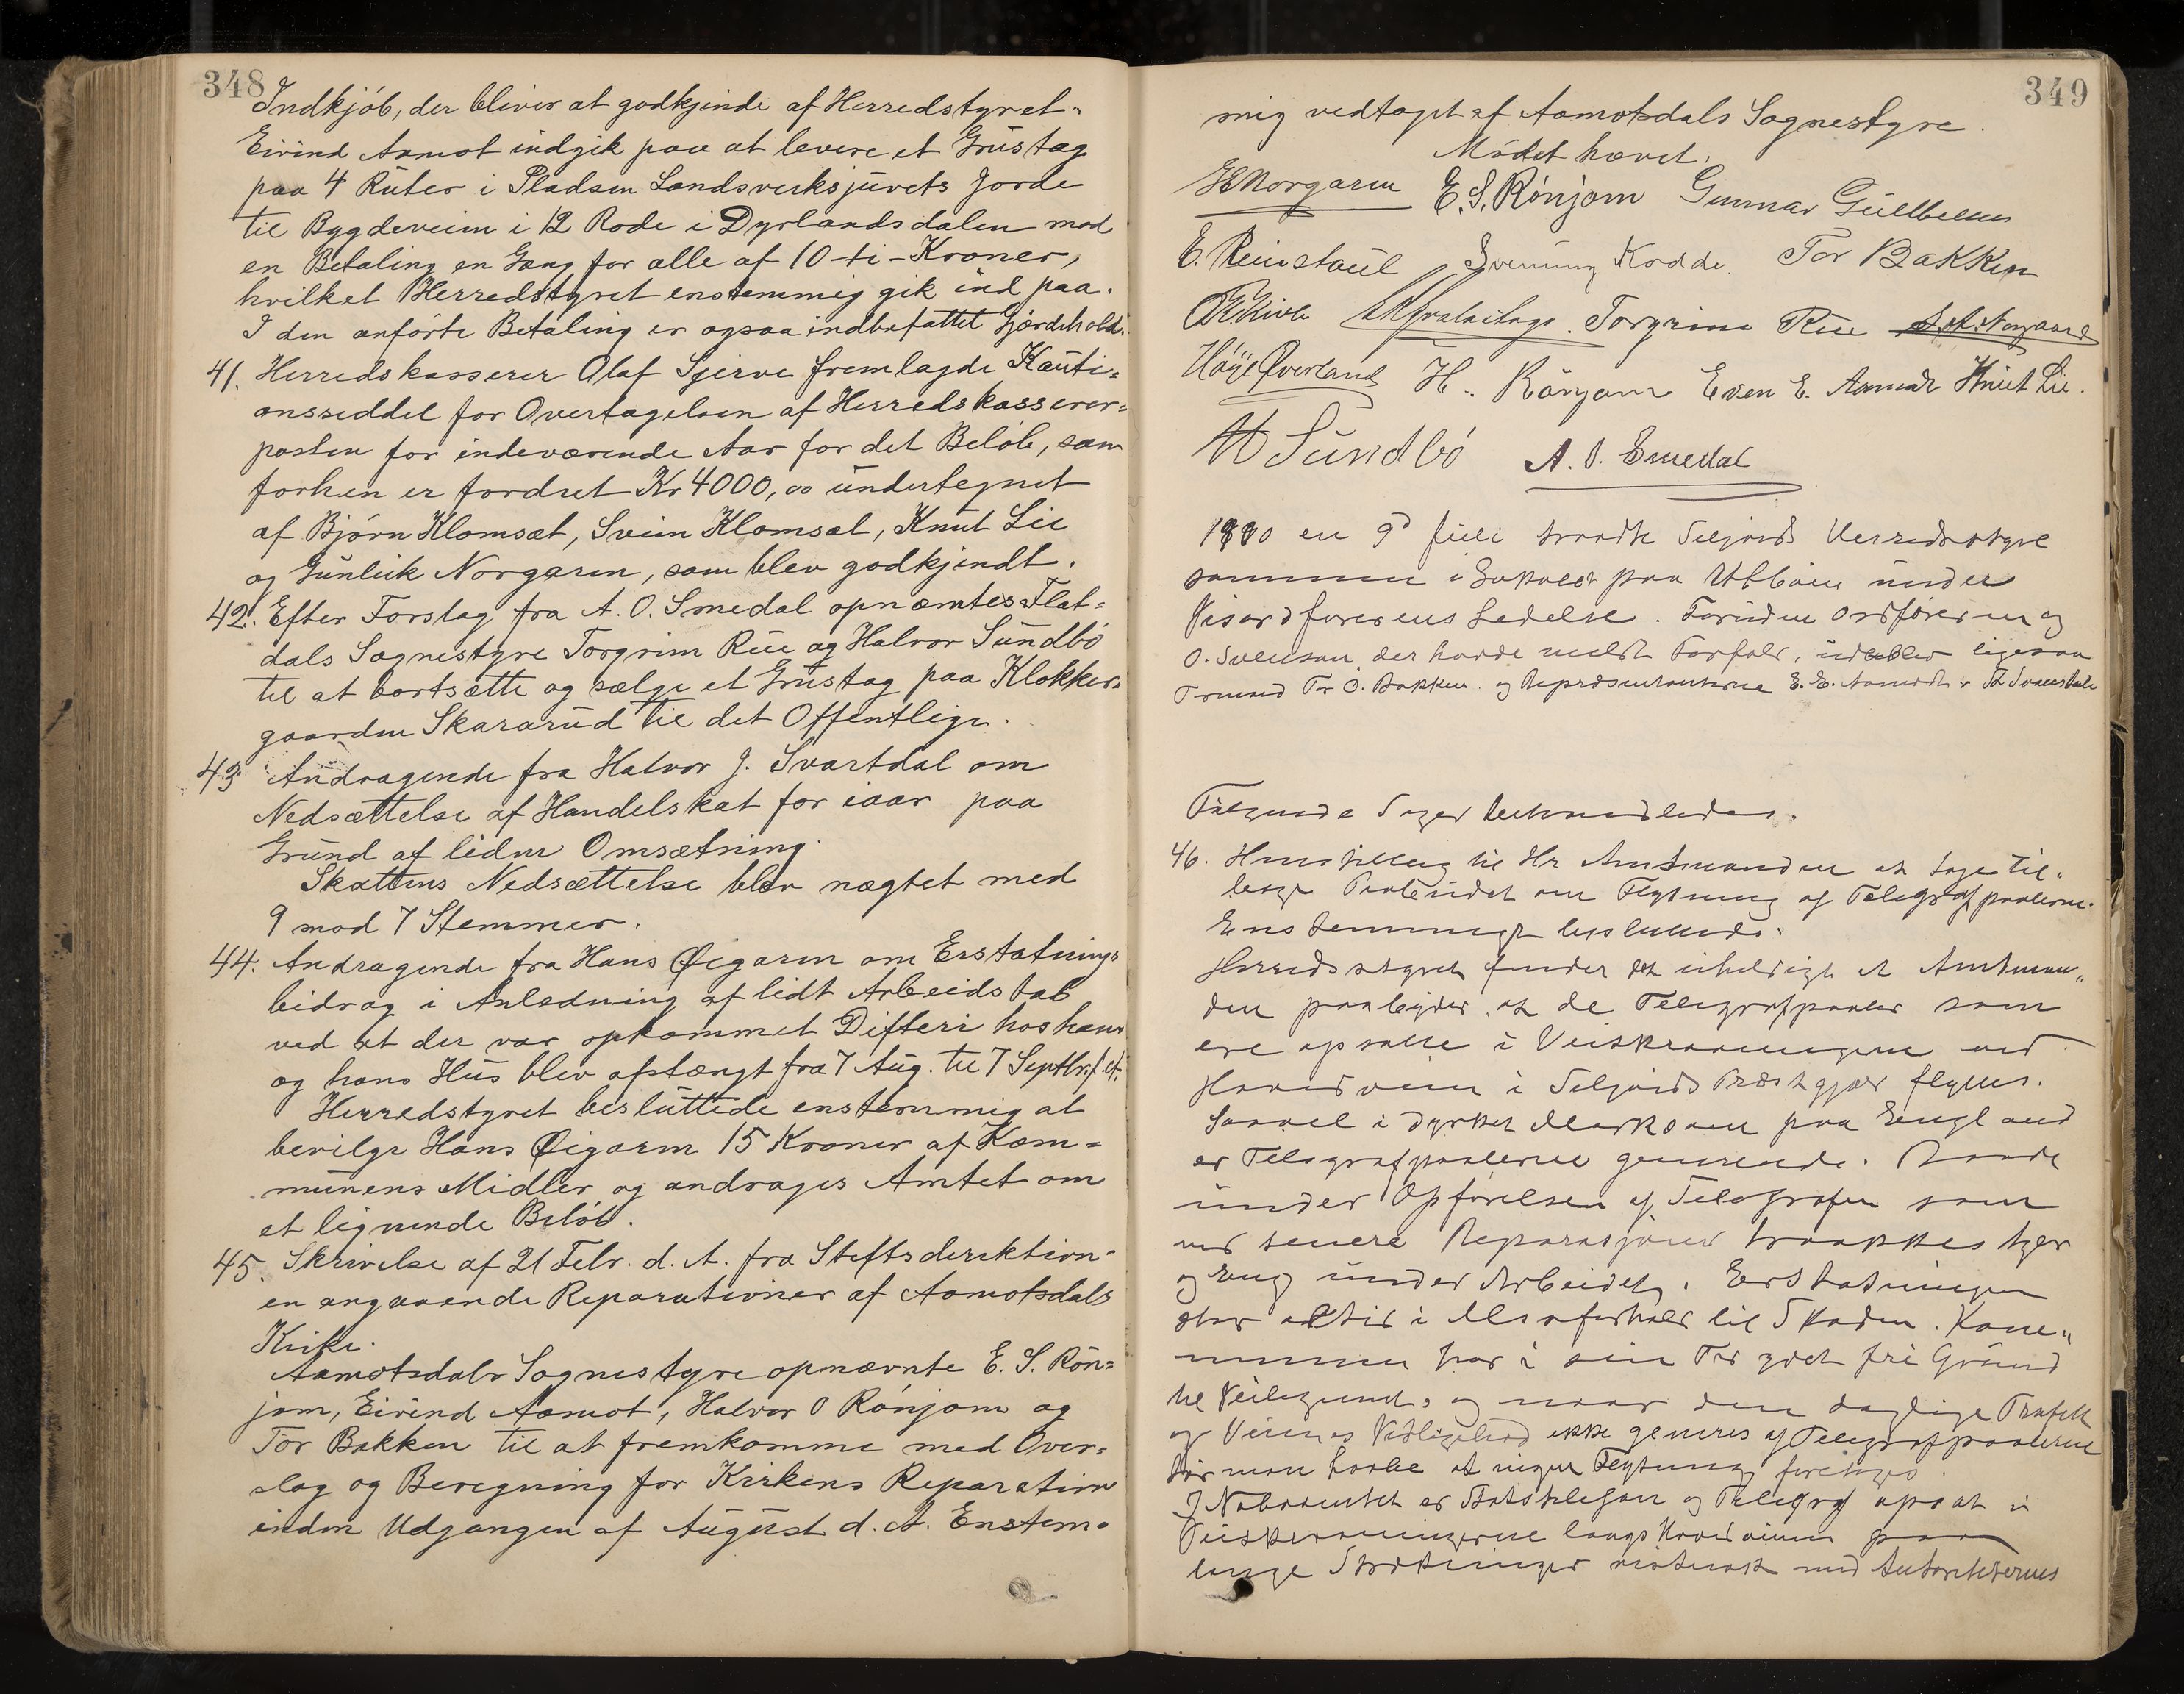 348
Indkjøb, der bliver at godkjende af Herredstyret.
Eivind Aamot indgik paa at levere et Grustag
paa 4 Ruter i Pladsen Landsverksjuvets Jorde
til Bygdeveien i 12 Rode i Dyrlandsdalen mod
en Betaling en Gang for alle af 10 - ti - Kroner,
hvilket Herredstyret enstemmig gik ind paa.
I den anførte Betaling er ogsaa indbefattet Gjærdehold.
41. Herredskasserer Olaf Sjerve fremlagde Kauti-
onsseddel for Overtagelsen af Herredskasserer-
posten for indeværende Aar for det Beløb, som
forhen er fordret Kr 4000,00 undertegnet
af Bjørn Klomsæt, Svein Klomsæt, Knut Lie
og Gunleik Norgaren, som blev godkjendt.
42. Efter Forslag fra A. O. Smedal opnæmtes Flat-
dals Sognestyre Torgrim Rue og Halvor Sundbø
til at bortsætte og sælge et Grustag paa Klokker-
gaarden Skararud til det Offentlige.
43 Andragende fra Halvor J. Svartdal om
Nedsættelse af Handelskat for iaar paa
Grund af liden Omsætning.
Skattens Nedsættelse blev nægtet med
9 mod 7 Stemmer.
44. Andragende fra Hans Øigarn om Erstatnings
bidrag i Anledning af lidt Arbeidstab
ved at der var opkommet Difteri hos ham
og hans Hus blev afstængt fra 7 Aug. til 7 Septbr. f. A.
Herredstyret besluttede enstemmig at
bevilge Hans Øigarn 15 Kroner af Kom-
munens Midler og andrages Amtet om
et lignende Beløb.
45. Skrivelse af 21 Febr. d. A. fra Stiftsdirektion-
en angaaende Reparationer af Aamotsdals
Kirke.
Aamotsdals Sognestyre opnævnte E. S. Røn-
jom, Eivind Aamot, Halvor O Rønjom og
Tor Bakken til at fremkomme med Over-
slag og Beregning for Kirkens Reparation
inden Udgangen af August d. A. Enstem-
349
mig vedtaget af Aamotsdals Sognestyre.
Mødet hævet.
Norgaren E. S. Rønjom Gunnar Gullbeksen
E. Reinstaul Svenung Kodde. Tor Bakken
Torgrim Rue
Høye Øverland H. Rønjom Even E. Aamodt Knut Lie.
H Sundbø A. O. Smedal
den 9d Juli traadte Seljords Herredsstyre
sammen i Lokalet paa Utbøen under
Viseordførerens Ledelse. Foruden Ordføreren og
O. Svensson, der havde meldt Forfald, udeblev ligesaa
Formand Tor O. Bakken og Repræsentanterne E. E. Aamodt
Følgende Sager behandledes.
46. Henstilling til Hr Amtmanden at tage til-
bage Paabudet om Flytning af Telegrafpaalerne.
Enstemmigt besluttedes:
Herredsstyret finder det uheldigt at Amtman-
den paabyder, at de Telegrafpaaler som
ere opsatte i Veiskraaningerne ved
Hovedveien i Seljords Præstegjæld flyttes.
Saavel i dyrket Mark som paa England
er Telegrafpaalerne generende. Baade
under Opførelsen af Telegrafen som
ved senere Reparasjoner traakkes Ager
og Eng under Arbeidet. Erstatningen
staar altid i Misforhold til Skaden. Kom-
munen har i sin Tid givet fri Grund
til Veilegemet, og naar den daglige Trafik
og Veiens Vedligehold ikke generes af Telegrafpaalerne
tør man haabe at ingen Flytning foretages.
I Naboamtet er Statstelefon og Telegraf opsat i
Veiskraaningerne langs Hovedveien paa
lange Strækninger med Autoriteternes